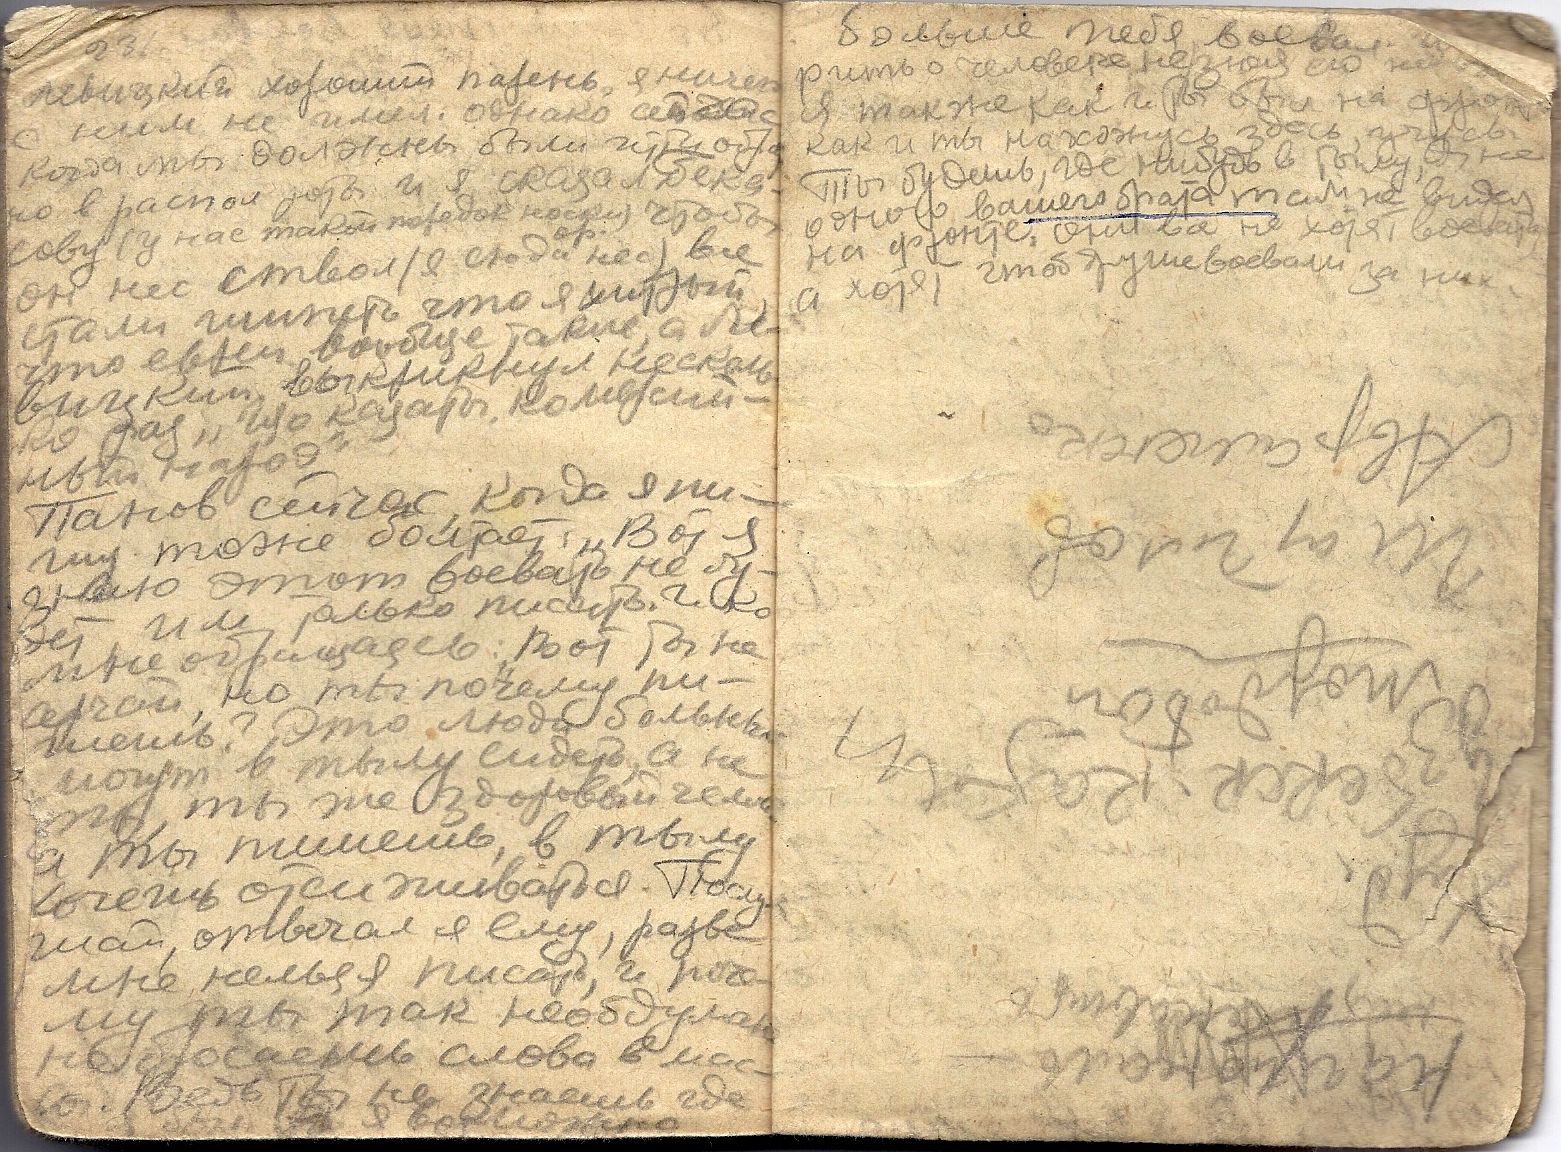 23.
Левицкий хороший парень, я ничего
с ним не имел. однако сейчас
когда мы должны были идти обра-
но в распол роты и я сказал Бека-
сову (у нас такой порядок носки) чтобы
ор.
он нес ствол (я сюда нес) все
стали шипеть что я хитрый,
что евреи вообще такие, а Ле-
вицкий, выкрикнул несколь-
ко раз „що казаты, комерсий-
ный народ"
Панов сейчас, когда я пи-
шу тоже болтает: „Вот я
знаю этот воевать не бу-
дет им только писать. И ко
мне обращаясь: „Вот ты не
серчай, но ты почему пи-
шешь? Это люди больны
могут в тылу сидеть, а не
ты, ты же здоровый челов
а ты пишешь, в тылу
хочешь отсиживаться. Послу-
шай, отвечал я ему, разве
мне нельзя писать, и поче-
му ты так необдуман
но бросаешь слова в мас
сы. Ведь ты не знаешь где
я был и я возможно
больше тебя воевал.
рить о человеке не зная его
я также как и ты был на фронте
как и ты нахожусь здесь, учусь
Ты будешь, где нибудь в тылу, я не
одного вашего брата там не видел
на фронте. они ва не хотят воевать
а хотят чтоб другие воевали за них.
националь-
ность
Худ.
узбек. казах
17
Шаулов
Авраменко